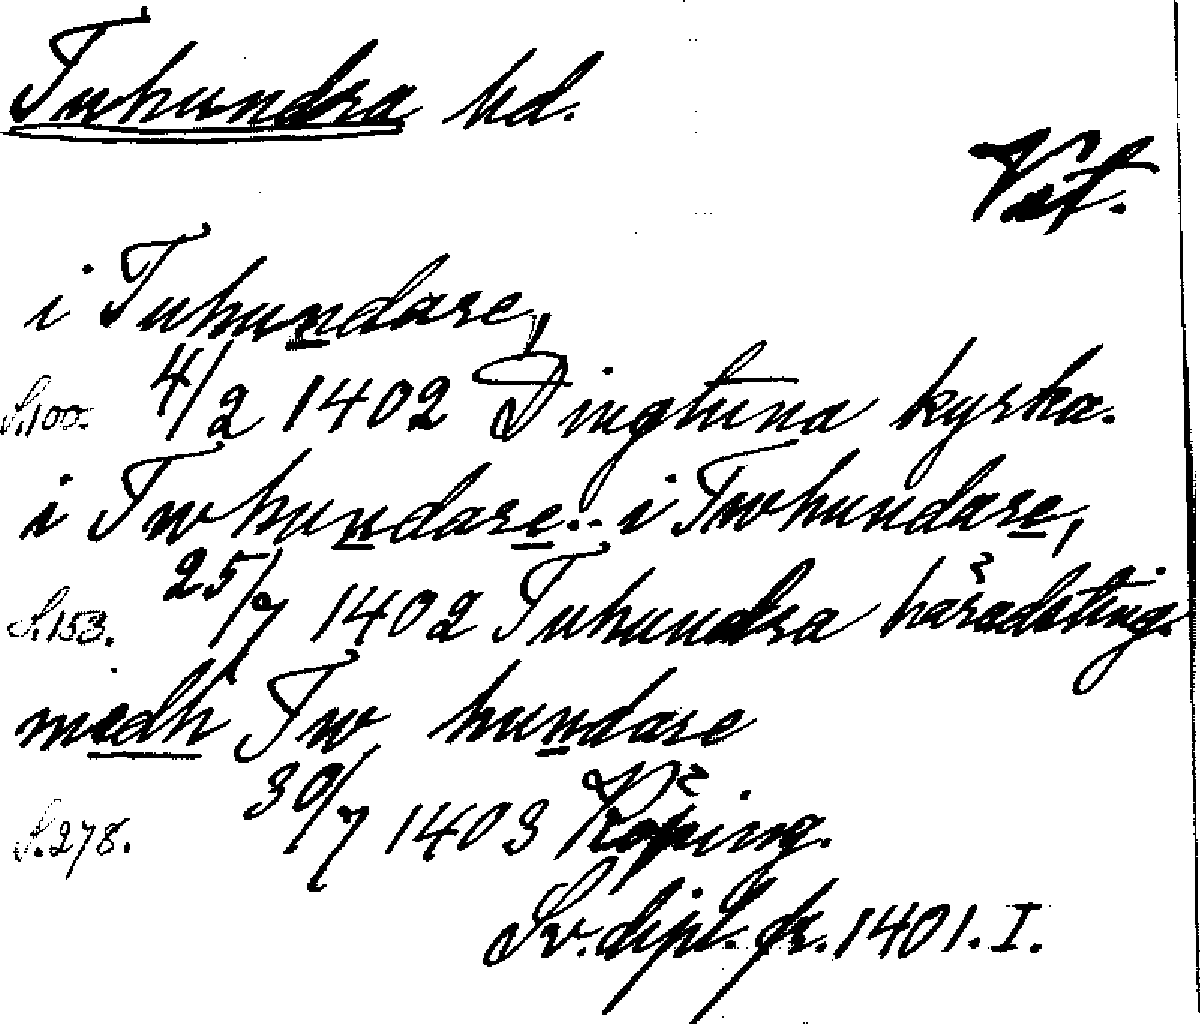 Tuhundra hd.
Väst.
i Tuhundare,
S. 100. 4/2 1402 Dingtuna kyrka.
i Twhundare.. i Twhundare,
S. 153. 25/7 1402 Tuhundra häradsting.
medh Tw hundare
S. 278. 30/7 1403 Köping.
Sv. dipl. fr. 1401. I.